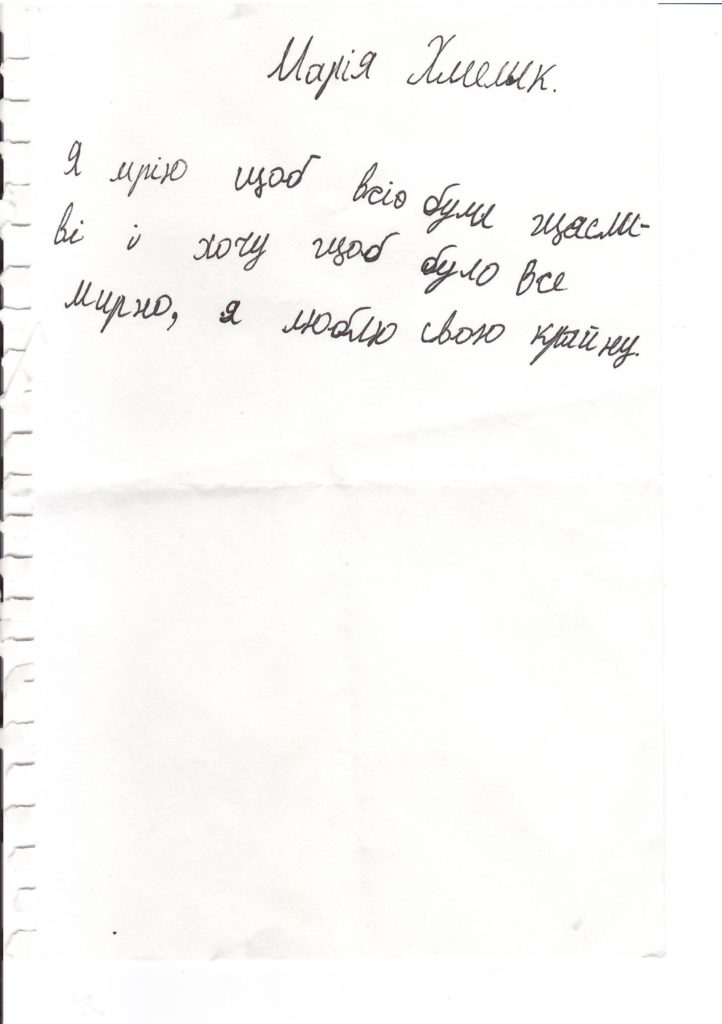 Марія Хмелик.
Я мрію щоб всіо були щасли-
ві і хочу щоб було все
мирно, я люблю свою крайну.